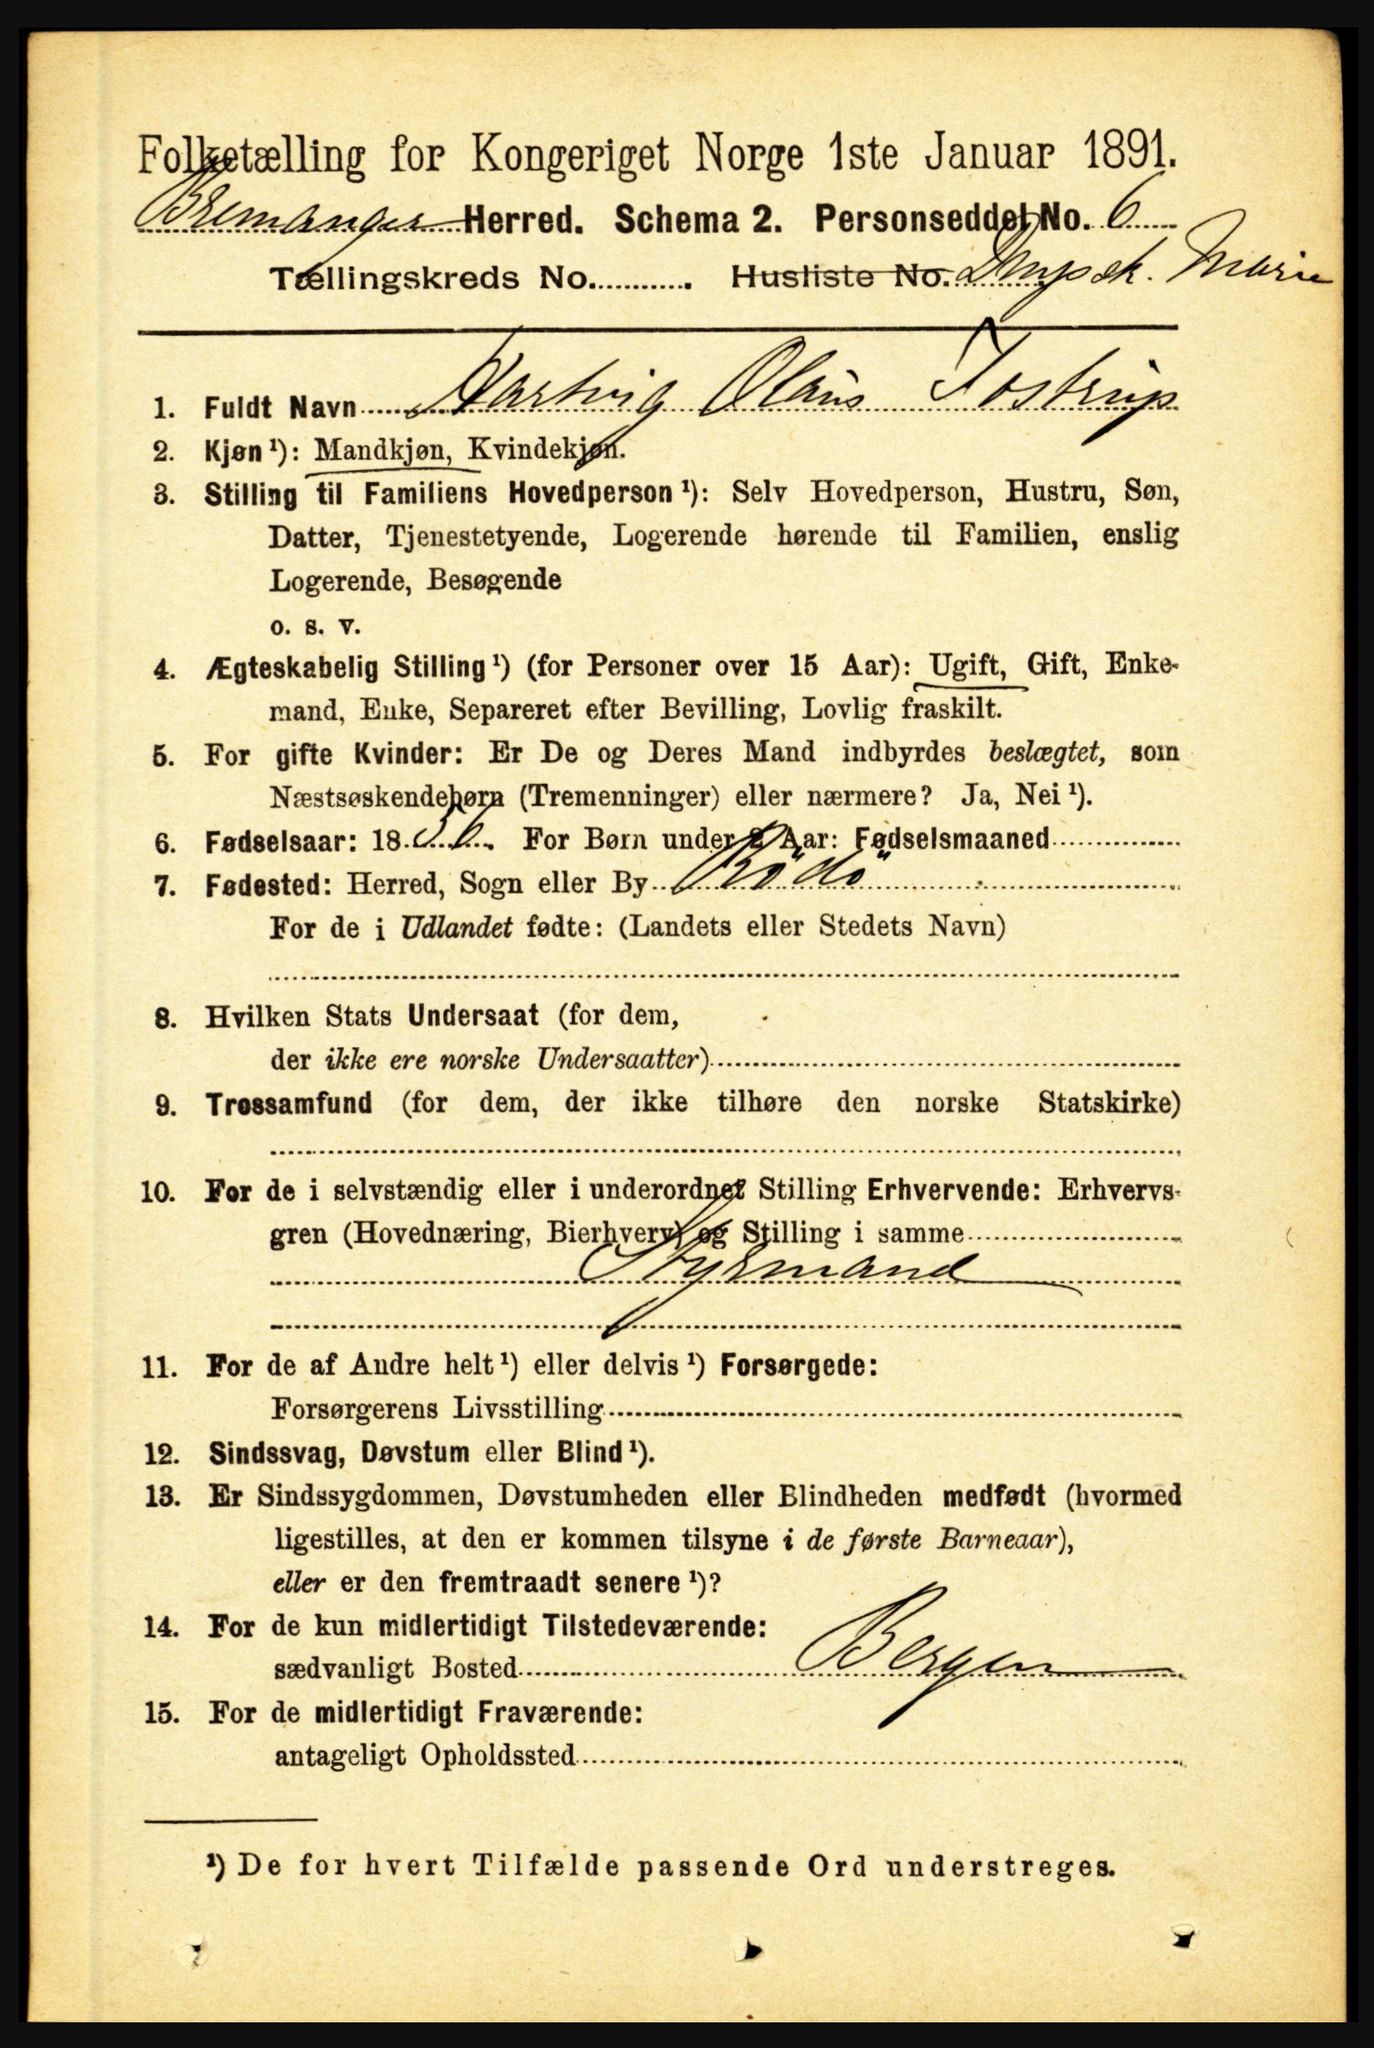 Folketælling for Kongeriget Norge 1ste Januar 1891.
Bremanger Herred. Schema 2. Personseddel No. 6
Tællingskreds No. .......... Husliste No. Dmpsk. Marie
1. Fuldt Navn Hartvig Olaus Tostrup
2. Kjøn¹): Mandkjøn, Kvindekjøn.
3. Stilling til Familiens Hovedperson¹): Selv Hovedperson, Hustru, Søn,
Datter, Tjenestetyende, Logerende hørende til Familien, enslig
Logerende, Besøgende
o. s. v.
4. Ægteskabelig Stilling¹) (for Personer over 15 Aar): Ugift, Gift, Enke-
mand, Enke, Separeret efter Bevilling, Lovlig fraskilt.
5. For gifte Kvinder: Er De og Deres Mand indbyrdes beslægtet, som
Næstsøskendebørn (Tremenninger) eller nærmere? Ja, Nei¹).
6. Fødselsaar: 1836. For Børn under 2 Aar: Fødselsmaaned
7. Fødested: Herred, Sogn eller By Rödö
For de i Udlandet fødte: (Landets eller Stedets Navn)
8. Hvilken Stats Undersaat (for dem,
der ikke ere norske Undersaatter)
9. Trossamfund (for dem, der ikke tilhøre den norske Statskirke)
10. For de i selvstændig eller i underordnet Stilling Erhvervende: Erhvervs-
gren (Hovednæring, Bierhverv) og Stilling i samme
Styrmand
11. For de af Andre helt¹) eller delvis¹) Forsørgede:
Forsørgerens Livsstilling
12. Sindssvag, Døvstum eller Blind¹).
13. Er Sindssygdommen, Døvstumheden eller Blindheden medfødt (hvormed
ligestilles, at den er kommen tilsyne i de første Barneaar),
eller er den fremtraadt senere¹)?
14. For de kun midlertidigt Tilstedeværende:
sædvanligt Bosted Bergen
15. For de midlertidigt Fraværende:
antageligt Opholdssted
¹) De for hvert Tilfælde passende Ord understreges.